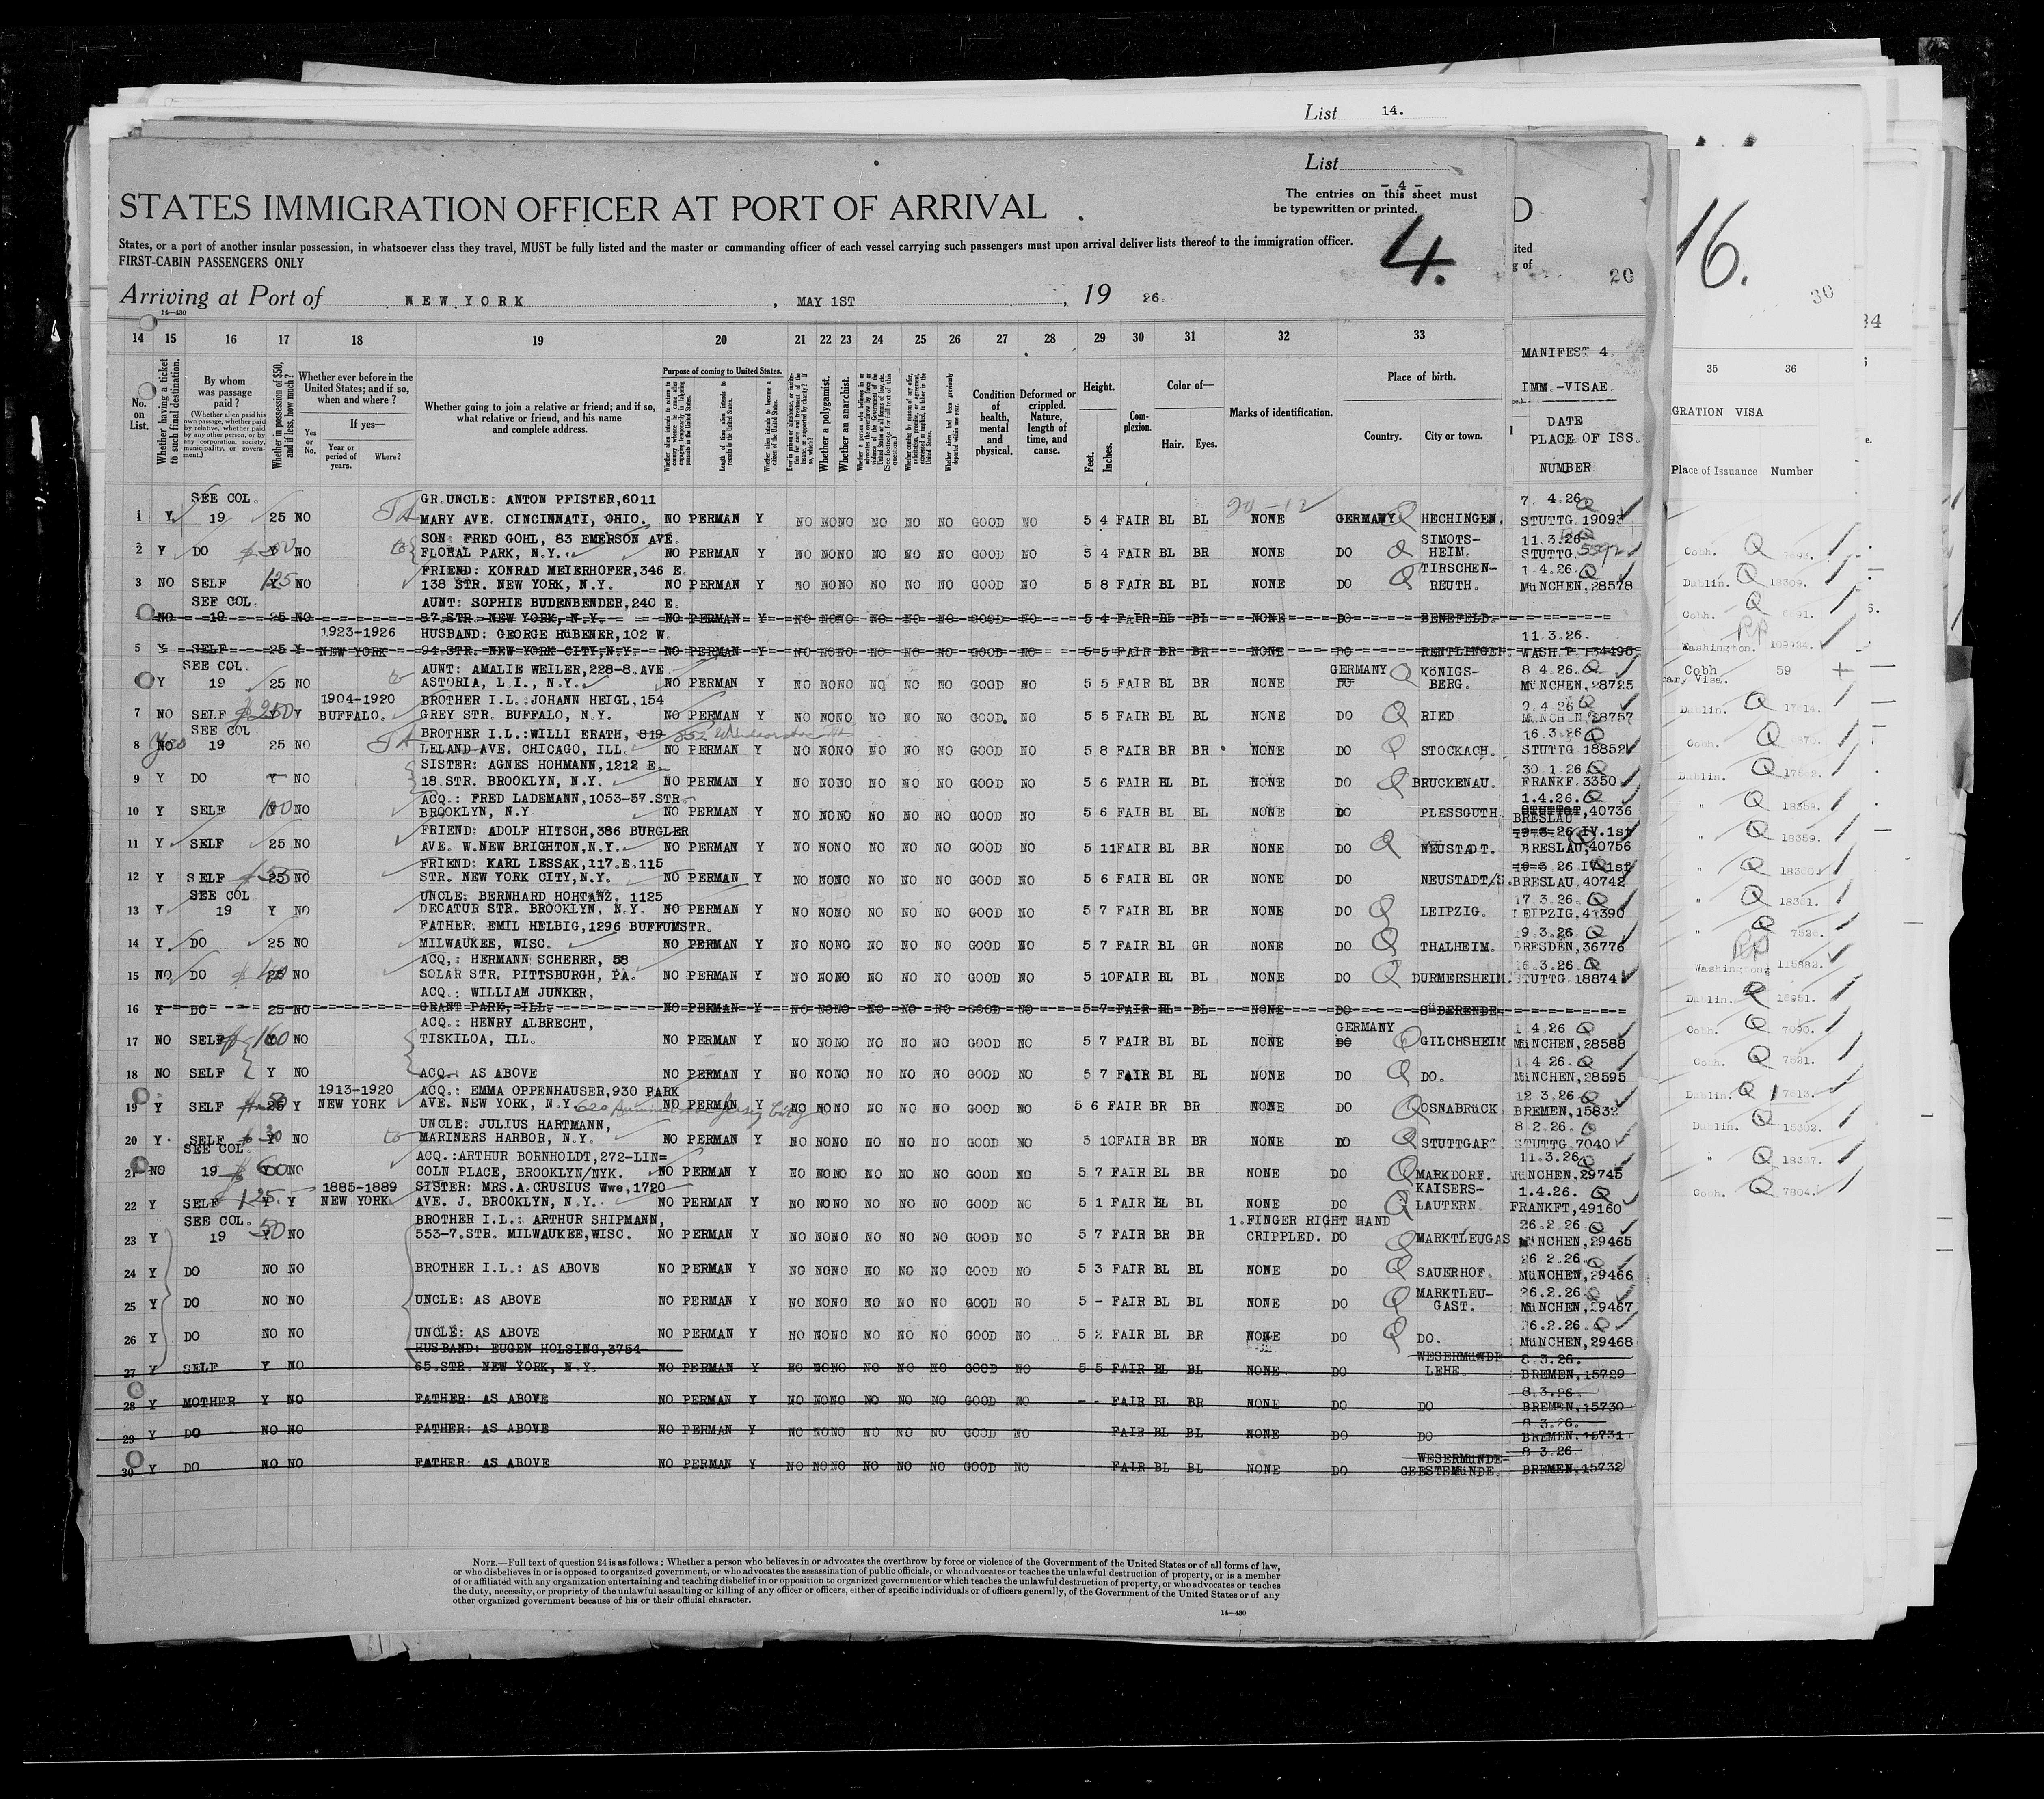 List 14.
List
- 4 -
The entries on this sheet must
be typewritten or printed.
STATES IMMIGRATION OFFICER AT PORT OF ARRIVAL
4.
16.
States, or a port of another insular possession, in whatsoever class they travel, MUST be fully listed and the master or commanding officer of each vessel carrying such passengers must upon arrival deliver lists thereof to the immigration officer.
FIRST-CABIN PASSENGERS ONLY
20
30
Arriving at Port of NEW YORK, MAY 1ST, 19 26.
14—430
14 15 16 17 18 19 20 21 22 23 24 25 26 27 28 29 30 31 32 33
MANIFEST 4.
IMM.-VISAE.
DATE
PLACE OF ISS.
NUMBER
35 36
GRATION VISA
Place of Issuance Number
No. on List.
Whether having a ticket to such final destination.
By whom was passage paid?
(Whether alien paid his own passage, whether paid by relative, whether paid by any other person, or by any corporation, society, municipality, or government.)
Whether in possession of $50, and if less, how much?
Whether ever before in the United States; and if so, when and where?
If yes—
Yes or No.
Year or period of years.
Where?
Whether going to join a relative or friend; and if so, what relative or friend, and his name and complete address.
Purpose of coming to United States.
Whether a polygamist.
Whether an anarchist.
Condition of health, mental and physical.
Deformed or crippled. Nature, length of time, and cause.
Height.
Feet. Inches.
Complexion.
Color of—
Hair. Eyes.
Marks of identification.
Place of birth.
Country. City or town.
SEE COL. GR.UNCLE: ANTON PFISTER,6011 20-12 7. 4.26
1 Y 19 25 NO MARY AVE. CINCINNATI, OHIO. NO PERMAN Y NO NO NO NO NO NO GOOD NO 5 4 FAIR BL BL NONE GERMANY HECHINGEN. STUTTG 19093
SON: FRED GOHL, 83 EMERSON AVE. SIMOTS- 11.3.26
2 Y DO Y NO FLORAL PARK, N.Y. NO PERMAN Y NO NO NO NO NO NO GOOD NO 5 4 FAIR BL BR NONE DO HEIM. STUTTG
FRIEND: KONRAD MEIERHOFER,346 E. TIRSCHEN- 1.4.26
3 NO SELF 125 Y NO 138 STR. NEW YORK, N.Y. NO PERMAN Y NO NO NO NO NO NO GOOD NO 5 8 FAIR BL BL NONE DO REUTH. MüNCHEN,28578
SEE COL. AUNT: SOPHIE BUDENBENDER,240 E.
NO 19 25 NO 87 STR. NEW YORK, N.Y. NO PERMAN Y NO NO NO NO NO NO GOOD NO 5 4 FAIR BL BL NONE DO BENEFELD.
1923-1926 HUSBAND: GEORGE HüBENER,102 W. 11.3.26.
5 Y SELF 25 Y NEW YORK 94 STR. NEW YORK CITY,N.Y. NO PERMAN Y NO NO NO NO NO NO GOOD NO 5 5 FAIR BR BR NONE DO RENTLINGEN. WASH.P. 134495
SEE COL. AUNT: AMALIE WEILER,228-8.AVE. GERMANY KöNIGS- 8 4.26
Y 19 25 NO to ASTORIA, L.I., N.Y. NO PERMAN Y NO NO NO NO NO NO GOOD NO 5 5 FAIR BL BR NONE DO BERG. MüNCHEN,28725
1904-1920 BROTHER I.L.:JOHANN HEIGL,154 9.4.26
7 NO SELF $250 Y BUFFALO. GREY STR. BUFFALO, N.Y. NO PERMAN Y NO NO NO NO NO NO GOOD. NO 5 5 FAIR BL BL NONE DO RIED MüNCHEN,28757
SEE COL BROTHER I.L.:WILLI ERATH, 819 16.3.26
8 NO Yes 19 25 NO LELAND AVE. CHICAGO, ILL. NO PERMAN Y NO NO NO NO NO NO GOOD NO 5 8 FAIR BR BR NONE DO STOCKACH. STUTTG 18852
SISTER: AGNES HOHMANN,1212 E. 30.1.26
9 Y DO Y NO 18 STR. BROOKLYN, N.Y. NO PERMAN Y NO NO NO NO NO NO GOOD NO 5 6 FAIR BL BL NONE DO BRUCKENAU. FRANKF.3350
ACQ.: FRED LADEMANN,1053-57.STR. 1.4.26.
10 Y SELF 100 Y NO BROOKLYN, N.Y. NO PERMAN Y NO NO NO NO NO NO GOOD NO 5 6 FAIR BL BL NONE DO PLESSGUTH STUTTGT,40736
BRESLAU
FRIEND: ADOLF HITSCH,386 BURGLER 9-3-26 IV.1st
11 Y SELF 25 NO AVE. W.NEW BRIGHTON,N.Y. NO PERMAN Y NO NO NO NO NO NO GOOD NO 5 11 FAIR BL BR NONE DO NEUSTADT. BRESLAU,40756
FRIEND: KARL LESSAK,117.E.115 10-3 26 IV 1st
12 Y SELF 25 NO STR. NEW YORK CITY,N.Y. NO PERMAN Y NO NO NO NO NO NO GOOD NO 5 6 FAIR BL GR NONE DO NEUSTADT/S. BRESLAU 40742
SEE COL UNCLE: BERNHARD HOHTANZ. 1125 17 3.26
13 Y 19 Y NO DECATUR STR. BROOKLYN, N.Y. NO PERMAN Y NO NO NO NO NO NO GOOD NO 5 7 FAIR BL BR NONE DO LEIPZIG. LEIPZIG,41390
FATHER: EMIL HELBIG,1296 BUFFUMSTR. 19.3.26
14 Y DO 25 NO MILWAUKEE, WISC. NO PERMAN Y NO NO NO NO NO NO GOOD NO 5 7 FAIR BL GR NONE DO THALHEIM. DRESDEN,36776
ACQ.: HERMANN SCHERER, 58 16.3.26
15 NO DO 25 NO SOLAR STR. PITTSBURGH, PA. NO PERMAN Y NO NO NO NO NO NO GOOD NO 5 10 FAIR BL BL NONE DO DURMERSHEIM. STUTTG 18874
ACQ.: WILLIAM JUNKER,
16 Y DO 25 NO GRANT PARK, ILL. NO PERMAN Y NO NO NO NO NO NO GOOD NO 5 7 FAIR BL BL NONE DO SüDERENDE
ACQ.: HENRY ALBRECHT, GERMANY 1 4.26
17 NO SELF $160 NO TISKILOA, ILL. NO PERMAN Y NO NO NO NO NO NO GOOD NO 5 7 FAIR BL BL NONE DO GILCHSHEIM MüNCHEN,28588
1.4.26.
18 NO SELF Y NO ACQ.: AS ABOVE NO PERMAN Y NO NO NO NO NO NO GOOD NO 5 7 FAIR BL BL NONE DO DO. MüNCHEN,28595
1913-1920 ACQ.: EMMA OPPENHAUSER,930 PARK 12 3.26
19 Y SELF 25 50 Y NEW YORK AVE. NEW YORK, N.Y. NO PERMAN Y NO NO NO NO NO NO GOOD NO 5 6 FAIR BR BR NONE DO OSNABRüCK BREMEN,15832
UNCLE: JULIUS HARTMANN, 8 2.26.
20 Y SELF 30 Y NO to MARINERS HARBOR, N.Y. NO PERMAN Y NO NO NO NO NO NO GOOD NO 5 10 FAIR BR BR NONE DO STUTTGART STUTTG 7040
SEE COL. ACQ.:ARTHUR BORNHOLDT,272-LIN= 11.3.26
21 NO 19 $60 Y NO COLN PLACE, BROOKLYN/NYK. NO PERMAN Y NO NO NO NO NO NO GOOD NO 5 7 FAIR BL BR NONE DO MARKDORF. MüNCHEN,29745
1885-1889 SISTER: MRS.A.CRUSIUS Wwe,1720 KAISERS- 1.4.26.
22 Y SELF 125 Y Y NEW YORK AVE. J. BROOKLYN, N.Y. NO PERMAN Y NO NO NO NO NO NO GOOD NO 5 1 FAIR BL BL NONE DO LAUTERN FRANKFT,49160
SEE COL. BROTHER I.L.: ARTHUR SHIPMANN, 1.FINGER RIGHT HAND 26.2 26
23 Y 19 50 Y NO 553-7.STR. MILWAUKEE,WISC. NO PERMAN Y NO NO NO NO NO NO GOOD NO 5 7 FAIR BR BR CRIPPLED. DO MARKTLEUGAS MüNCHEN,29465
26.2.26.
24 Y DO NO NO BROTHER I.L.: AS ABOVE NO PERMAN Y NO NO NO NO NO NO GOOD NO 5 3 FAIR BL BL NONE DO SAUERHOF. MüNCHEN,29466
MARKTLEU- 26.2.26
25 Y DO NO NO UNCLE: AS ABOVE NO PERMAN Y NO NO NO NO NO NO GOOD NO 5 - FAIR BL BL NONE DO GAST. MüNCHEN,29467
26.2.26.
26 Y DO NO NO UNCLE: AS ABOVE NO PERMAN Y NO NO NO NO NO NO GOOD NO 5 2 FAIR BL BR NONE DO DO. MüNCHEN,29468
HUSBAND: EUGEN HOLSING,3754 WESERMüNDE 8.3.26.
27 Y SELF Y NO 65.STR. NEW YORK, N.Y. NO PERMAN Y NO NO NO NO NO NO GOOD NO 5 5 FAIR BL BL NONE DO LEHE. BREMEN,15729
8.3.26.
28 Y MOTHER Y NO FATHER: AS ABOVE NO PERMAN Y NO NO NO NO NO NO GOOD NO - - FAIR BL BR NONE DO DO BREMEN,15730
8 3.26.
29 Y DO NO NO FATHER: AS ABOVE NO PERMAN Y NO NO NO NO NO NO GOOD NO FAIR BL BL NONE DO DO BREMEN.15731
WESERMüNDE- 8 3.26
30 Y DO NO NO FATHER: AS ABOVE NO PERMAN Y NO NO NO NO NO NO GOOD NO FAIR BL BL NONE DO GEESTEMüNDE. BREMEN,15732
Cobh. 7693.
Dublin. 18309.
Cobh. 6691.
Washington. 109424.
Cobh 59
ary Visa.
Dublin.
Cobh.
Dublin.
" 18358.
" 18359.
" 18360.
" 18361.
" 7528.
Washington, 115882.
Dublin. 16951.
Cobh. 7090.
Cobh. 7521.
Dublin. 7613.
Dublin. 15302.
" 18357.
Cobh. 7804.
NOTE.—Full text of question 24 is as follows: Whether a person who believes in or advocates the overthrow by force or violence of the Government of the United States or of all forms of law,
or who disbelieves in or is opposed to organized government, or who advocates the assassination of public officials, or who advocates or teaches the unlawful destruction of property, or is a member
of or affiliated with any organization entertaining and teaching disbelief in or opposition to organized government or which teaches the unlawful destruction of property, or who advocates or teaches
the duty, necessity, or propriety of the unlawful assaulting or killing of any officer or officers, either of specific individuals or of officers generally, of the Government of the United States or of any
other organized government because of his or their official character.
14—430